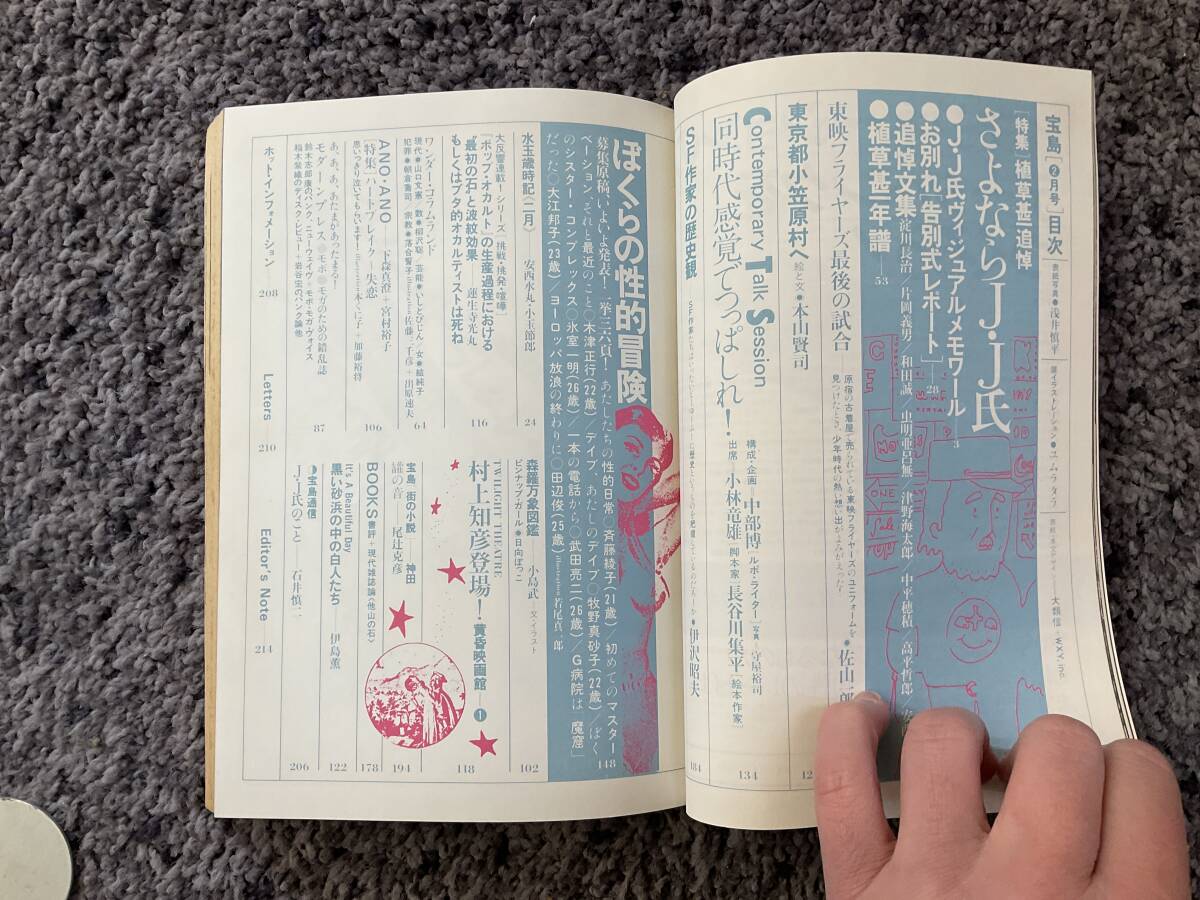 宝島[2月号]目次
表紙写真●浅井慎平
扉イラストレーション●ユムラタラ
大類信・WXY, inc.
[特集]植草甚一追悼
さよならJ・J氏
●J・J氏ヴィジュアルメモワール——3
●お別れ[告別式レポート]——28
●追悼文集 淀川長治/片岡義男/和田誠/虫明亜呂無/津野海太郎/中平穂積/高平哲郎/
●植草甚一年譜——53
東映フライヤーズ最後の試合
原宿の古着屋で売られている東映フライヤーズのユニフォームを
見つけたとき、少年時代の熱い想い出がよみがえった!
●佐山一郎
東京都小笠原村へ 絵と文●本山賢司
12
Contemporary Talk Session
同時代感覚でつっぱしれ!
構成・企画——中部博[ルポ・ライター]写真・守屋裕司
出席——小林竜雄[脚本家]長谷川集平[絵本作家]
134
SF作家の歴史観
●伊沢昭夫
184
ぼくらの性的冒険
募集原稿、いよいよ発表!一挙三六頁!あたしたちの性的日常○斉藤綾子(21歳)/初めてのマスター
ベーション、それと最近のこと○木津正行(22歳)/デイブ、あたしのデイブ○牧野真砂子(22歳)/ぼく
のシスター・コンプレックス○氷室一明(26歳)/一本の電話から○武田亮二(26歳)/G病院は「魔窟」
だった○大江邦子(23歳)/ヨーロッパ放浪の終わりに○田辺俊(25歳)illustration若尾真一郎
148
水玉歳時記(二月)——安西水丸・小玉節郎
24
大反響連載!シリーズ[挑戦・挑発・喧嘩]
「ポップ・オカルト」の生産過程における
"最初の石と波紋効果——蓮生寺光丸
もしくはブタ的オカルティストは死ね
116
ワンダー・コラムランド
現代●山口文憲 数●柳沢聡 芸能●いしとびじん/女●絵純子
犯罪●朝倉喬司 宗教●落合誓子 illustration佐藤三千彦+出原速夫
64
ANO・ANO——下森真澄+宮村裕子
特集[ハートブレイク——失恋
思いっきり泣いてもらいます!illustration本くに子+加藤裕将
106
あ、あ、あ、あたまがあったまる!
モダーン・プレス◎モボ◎モガのための錯乱誌
鈴木志郎康のパンク、ニューウェイヴ+モボ・モガ・ヴォイス
稲木紫織のディスク・レビュー+岩谷宏のパンク論他
87
ホットインフォメーション——208
Letters——210
Editor's Note——214
森羅万象図鑑——小島武——文・イラスト
ピンナップガール●日向ぽっこ
102
TWILIGHT THEATRE
村上知彦登場!黄昏映画館——1
118
宝島 街の小説——神田
謡の音 尾辻克彦
194
BOOKS書評+現代雑誌論〈他山の石〉
178
It's A Beautiful Day
黒い砂浜の中の白人たち——伊島薫
122
●宝島通信
J・J氏のこと——石井慎二
206